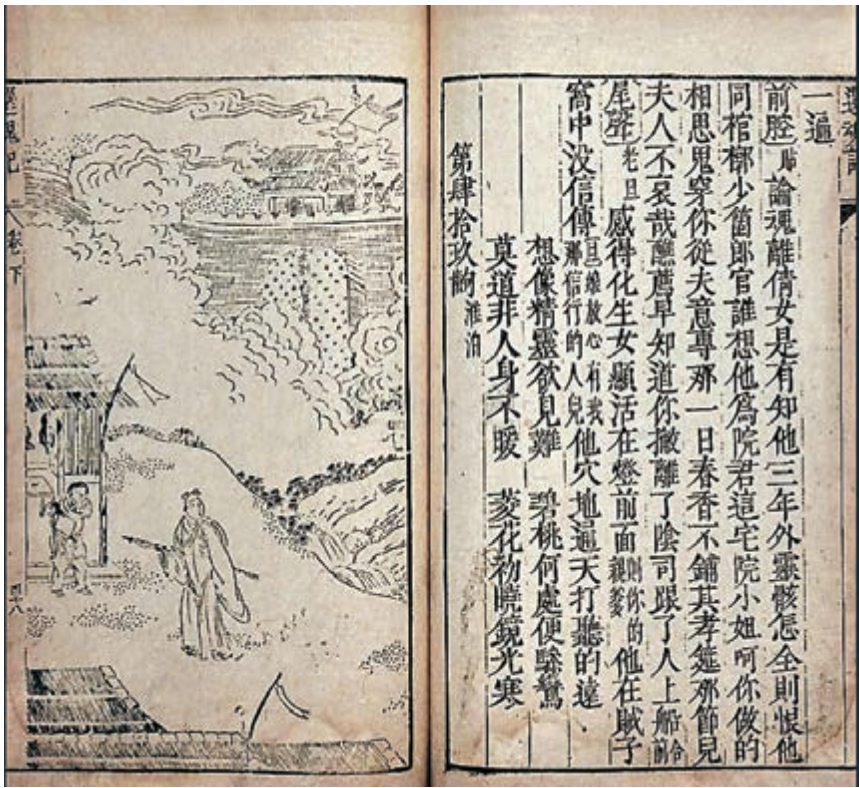 一遍
前腔 貼 論魂離倩女是有知他三年外靈骸怎全則恨他
同棺槨少箇郎官誰想他爲院君這宅院小姐呵你做的
相思鬼穿你從夫意專那一日春香不鋪其孝筵那節兒
夫人不哀哉醮薦早知道你撇離了陰司跟了人上船 合前
尾聲 老旦 感得化生女顯活在燈前面 則你的親爹 他在賊子
窩中没信傳 旦 娘放心有我那信行的人兒 他穴地通天打聽的遠
想像精靈欲見難 碧桃何處便驂鸞
莫道非人身不暖 菱花初曉鏡光寒
第肆拾玖齣 淮泊
還魂記 卷下